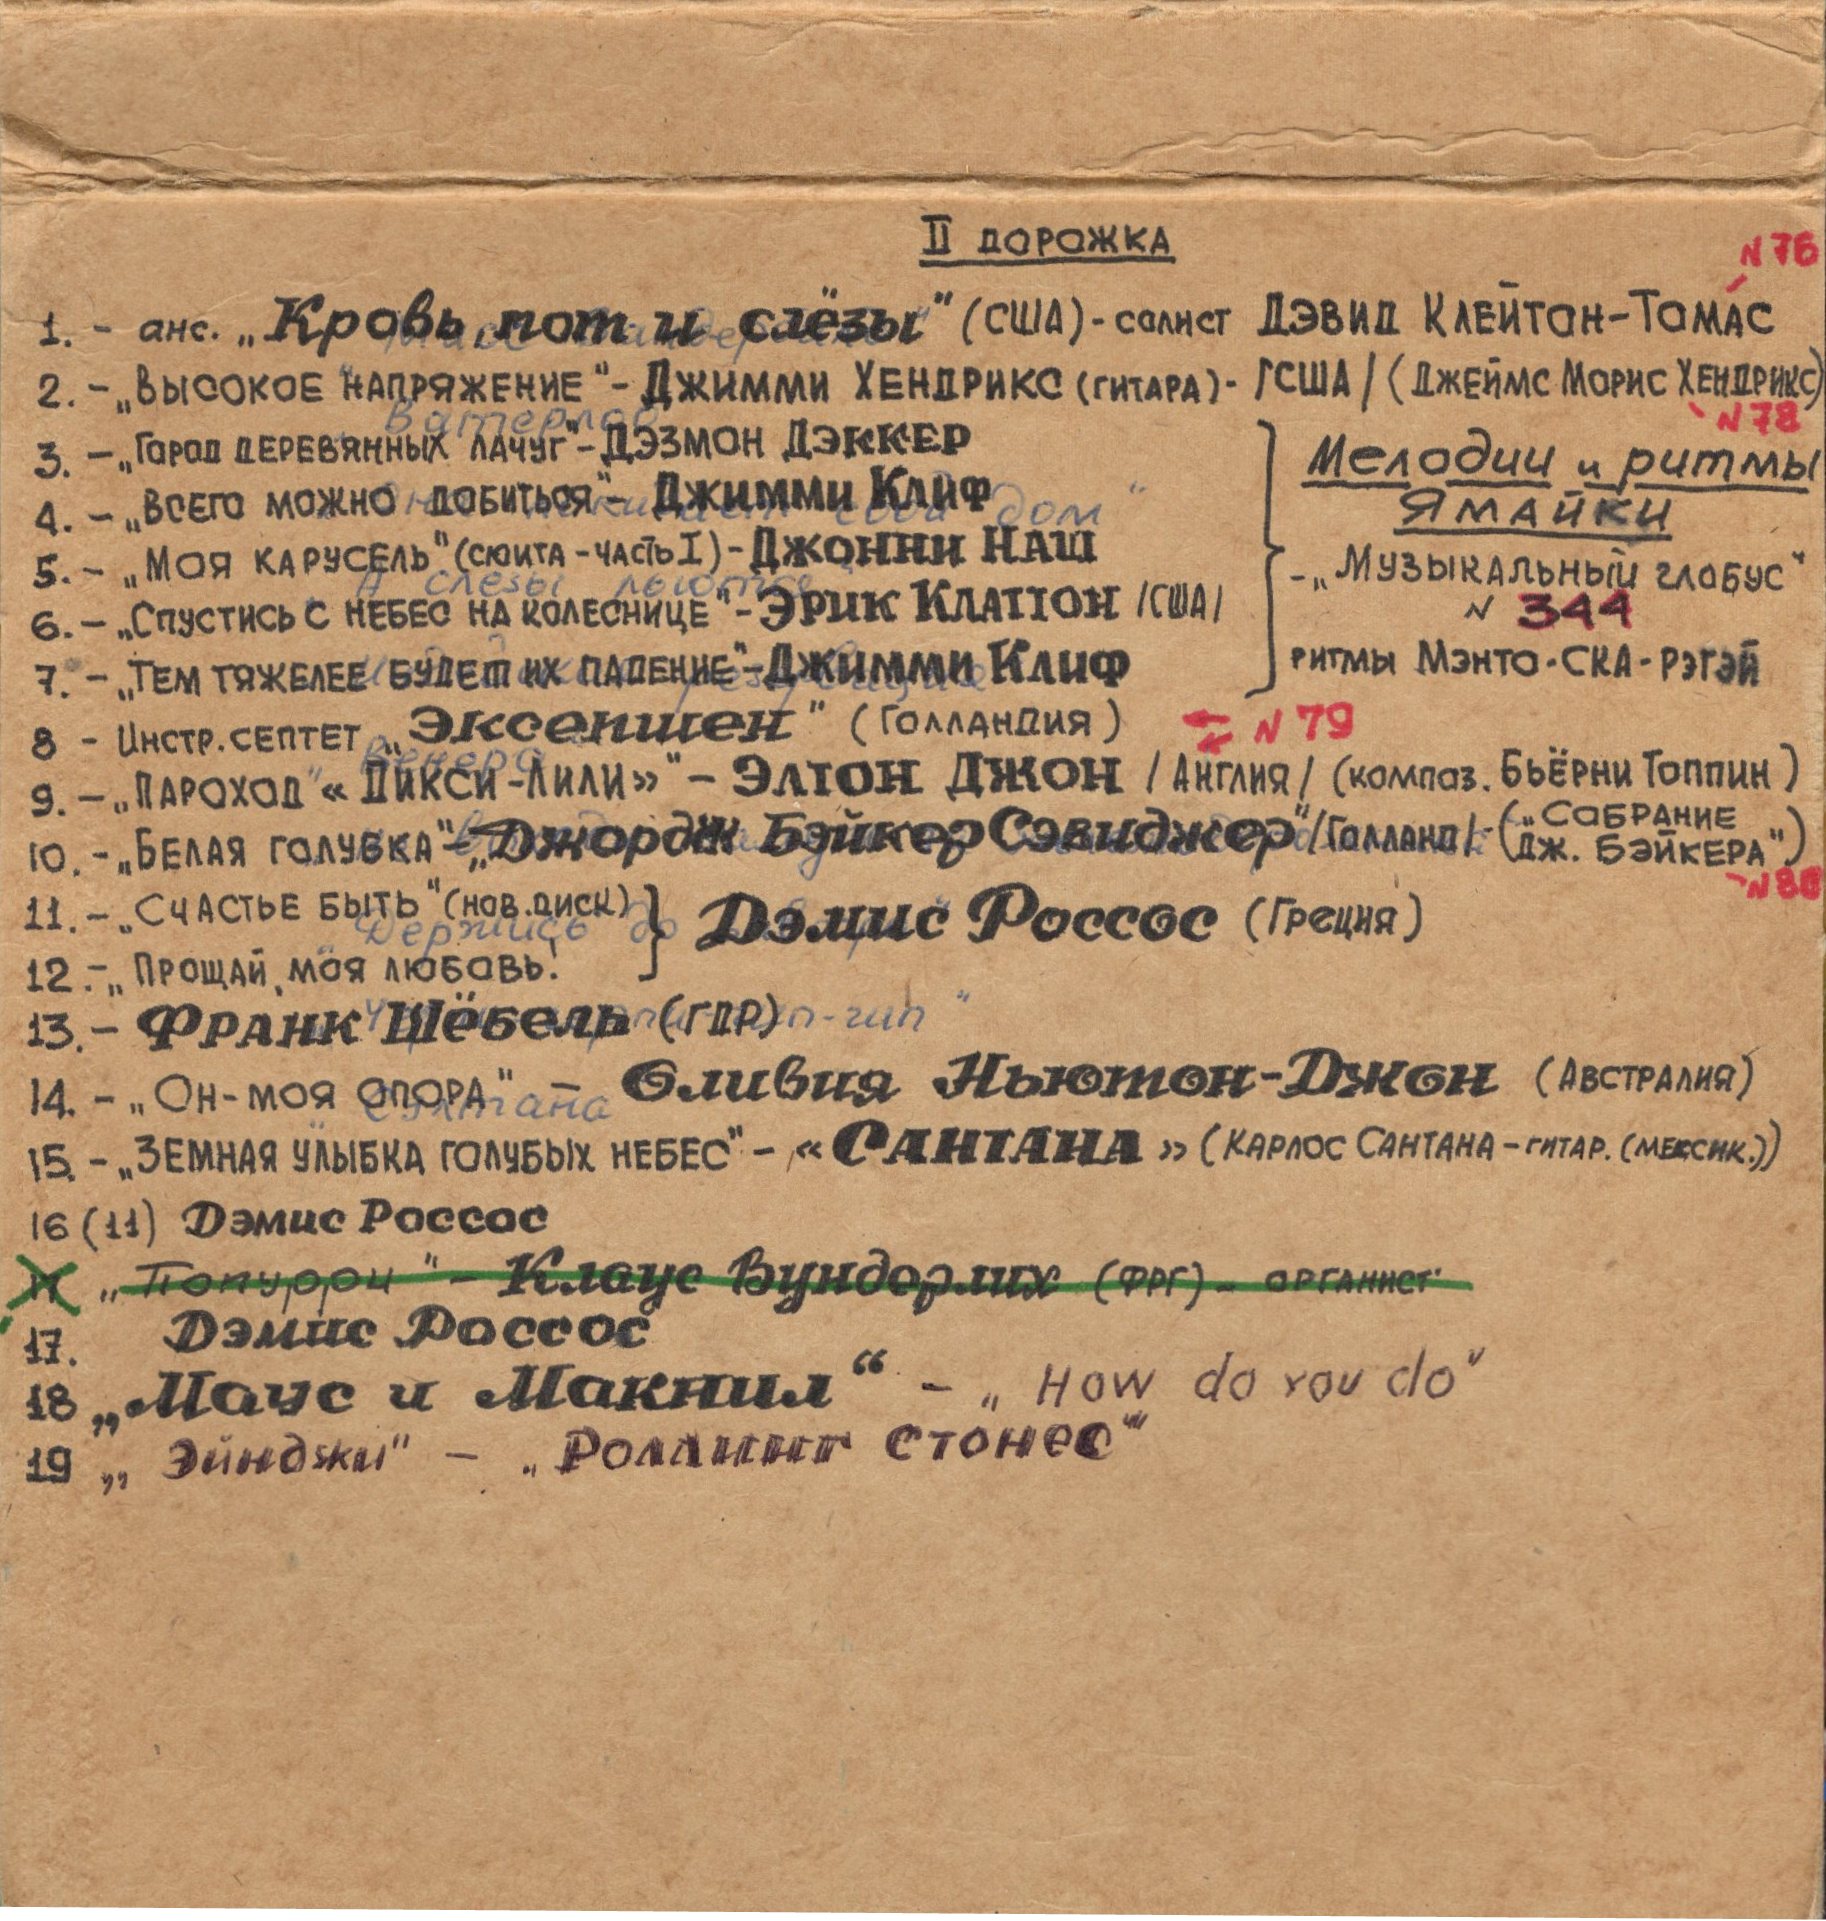 II ДОРОЖКА
N 76
1. - анс. „Кровь, пот и слёзы" (США) - солист ДЭВИД КЛЕЙТОН-ТОМАС
2. - „ВЫСОКОЕ НАПРЯЖЕНИЕ" - ДЖИММИ ХЕНДРИКС (ГИТАРА) - /США/ (ДЖЕЙМС МОРИС ХЕНДРИКС)
Ватерлоо
N 78
3. - „ГОРОД ДЕРЕВЯННЫХ ЛАЧУГ" - ДЭЗМОН ДЭККЕР
Мелодии и ритмы
ЯМАЙКИ
4. - „ВСЕГО МОЖНО ДОБИТЬСЯ" - ДЖИММИ КЛИФ
дом"
5. - „МОЯ КАРУСЕЛЬ" (СЮИТА - ЧАСТЬ I) - ДЖОННИ НАШ
- „МУЗЫКАЛЬНЫЙ ГЛОБУС"
N 344
А слёзы льются
6. - „СПУСТИСЬ С НЕБЕС НА КОЛЕСНИЦЕ" - ЭРИК КЛАПТОН /США/
7. - „ТЕМ ТЯЖЕЛЕЕ БУДЕТ ИХ ПАДЕНИЕ" - ДЖИММИ КЛИФ
РИТМЫ МЭНТО - СКА - РЭГЭЙ
8 - ИНСТР. СЕПТЕТ „Эксепшен" (ГОЛЛАНДИЯ)
N 79
Венера
9. - „ПАРОХОД «ДИКСИ-ЛИЛИ»" - ЭЛТОН ДЖОН /АНГЛИЯ/ (композ. БЬЁРНИ ТОППИН)
10. - „БЕЛАЯ ГОЛУБКА" - „Джордж Бэйкер Сэвиджер" /ГОЛЛАНД/ - („СОБРАНИЕ ДЖ. БЭЙКЕРА")
N 80
11. - „СЧАСТЬЕ БЫТЬ" (НОВ. ДИСК)
Дэмис Россос (ГРЕЦИЯ)
Держись до
12. - „ПРОЩАЙ, МОЯ ЛЮБОВЬ!
13. - ФРАНК ШЁБЕЛЬ (ГДР)
-гип"
14. - „ОН - МОЯ ОПОРА" - Оливия Ньютон-Джон (АВСТРАЛИЯ)
Султана
15. - „ЗЕМНАЯ УЛЫБКА ГОЛУБЫХ НЕБЕС" - «САНТАНА» (КАРЛОС САНТАНА - ГИТАР. (МЕКСИК.))
16 (11) Дэмис Россос
17 „Попурри" - Клаус Вундерлих (ФРГ) - ОРГАНИСТ
17. Дэмис Россос
18 „Маус и Макнил" - „How do you do"
19 „Эйнджи" - „Роллинг Стонес"